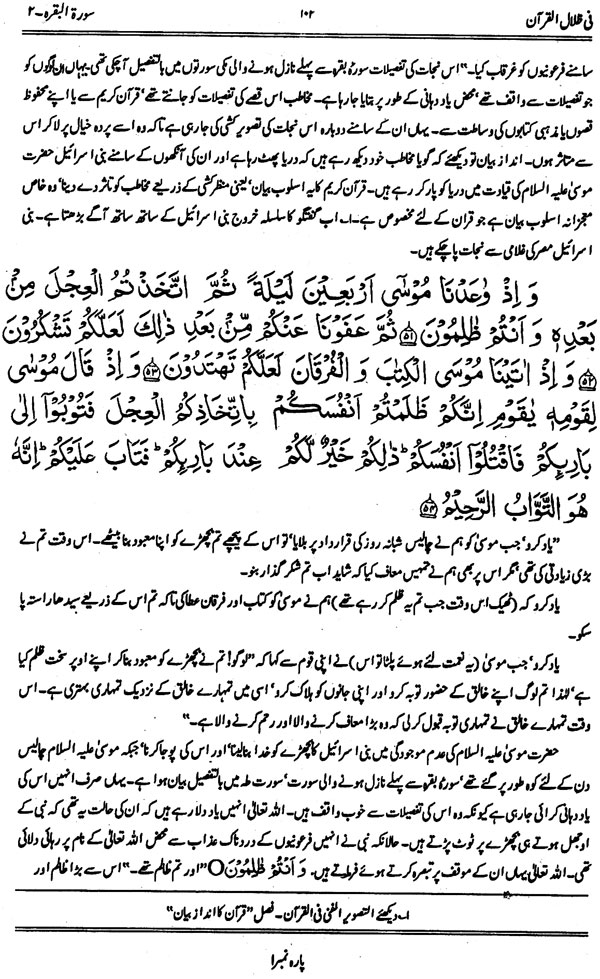 فی ظلال القرآن ۱۰۲ سورۃ البقرہ۔۲
سامنے فرعونیوں کو غرقاب کیا۔" اس نجات کی تفصیلات سورۂ بقرہ سے پہلے نازل ہونے والی مکی سورتوں میں بالتفصیل آچکی تھی۔ یہاں ان لوگوں کو
جو تفصیلات سے واقف تھے' محض یاد دہانی کے طور پر بتایا جارہا ہے۔ مخاطب اس قصے کی تفصیلات کو جانتے تھے' قرآن کریم سے یا اپنے محفوظ
قصوں یا مذہبی کتابوں کی وساطت سے۔ یہاں ان کے سامنے دوبارہ اس نجات کی تصویر کشی کی جارہی ہے تاکہ وہ اسے پردہ خیال پر لا کر اس
سے متاثر ہوں۔ انداز بیان تو دیکھئے کہ گویا مخاطب خود دیکھ رہے ہیں کہ دریا پھٹ رہا ہے اور ان کی آنکھوں کے سامنے بنی اسرائیل حضرت
موسیٰ علیہ السلام کی قیادت میں دریا کو پار کر رہے ہیں۔ قرآن کریم کا یہ اسلوب بیان' یعنی منظر کشی کے ذریعے مخاطب کو تاثر دے دینا' وہ خاص
معجزانہ اسلوب بیان ہے جو قرآن کے لئے مخصوص ہے۔ا۔ اب گفتگو کا سلسلہ خروج بنی اسرائیل کے ساتھ ساتھ آگے بڑھتا ہے۔ بنی
اسرائیل مصر کی غلامی سے نجات پاچکے ہیں۔
وَ اِذْ وٰعَدْنَا مُوْسٰٓى اَرْبَعِيْنَ لَيْلَةً ثُمَّ اتَّخَذْتُمُ الْعِجْلَ مِنْۢ
بَعْدِهٖ وَ اَنْتُمْ ظٰلِمُوْنَ ﴿۵۱﴾ ثُمَّ عَفَوْنَا عَنْكُمْ مِّنْۢ بَعْدِ ذٰلِكَ لَعَلَّكُمْ تَشْكُرُوْنَ
﴿۵۲﴾ وَ اِذْ اٰتَيْنَا مُوْسَى الْكِتٰبَ وَ الْفُرْقَانَ لَعَلَّكُمْ تَهْتَدُوْنَ ﴿۵۳﴾ وَ اِذْ قَالَ مُوْسٰى
لِقَوْمِهٖ يٰقَوْمِ اِنَّكُمْ ظَلَمْتُمْ اَنْفُسَكُمْ بِاتِّخَاذِكُمُ الْعِجْلَ فَتُوْبُوْٓا اِلٰى
بَارِئِكُمْ فَاقْتُلُوْٓا اَنْفُسَكُمْ ؕ ذٰلِكُمْ خَيْرٌ لَّكُمْ عِنْدَ بَارِئِكُمْ ؕ فَتَابَ عَلَيْكُمْ ؕ اِنَّهٗ
هُوَ التَّوَّابُ الرَّحِيْمُ ﴿۵۴﴾
"یاد کرو' جب موسیٰ کو ہم نے چالیس شبانہ روز کی قرارداد پر بلایا' تو اس کے پیچھے تم بچھڑے کو اپنا معبود بنا بیٹھے۔ اس وقت تم نے
بڑی زیادتی کی تھی' مگر اس پر بھی ہم نے تمہیں معاف کیا کہ شاید اب تم شکر گزار بنو۔
یاد کرو کہ (ٹھیک اس وقت جب تم یہ ظلم کر رہے تھے) ہم نے موسیٰ کو کتاب اور فرقان عطا کی تاکہ تم اس کے ذریعے سیدھا راستہ پا
سکو۔
یاد کرو' جب موسیٰ (یہ نعمت لئے ہوئے پلٹا تو اس) نے اپنی قوم سے کہا کہ "لوگو! تم نے بچھڑے کو معبود بنا کر اپنے اوپر سخت ظلم کیا
ہے' لہٰذا تم لوگ اپنے خالق کے حضور توبہ کرو اور اپنی جانوں کو ہلاک کرو' اسی میں تمہارے خالق کے نزدیک تمہاری بہتری ہے۔ اس
وقت تمہارے خالق نے تمہاری توبہ قبول کرلی کہ وہ بڑا معاف کرنے والا اور رحم کرنے والا ہے۔"
حضرت موسیٰ علیہ السلام کی عدم موجودگی میں بنی اسرائیل کا بچھڑے کو خدا بنا لینا' اور اس کی پوجا کرنا' جبکہ موسیٰ علیہ السلام چالیس
دن کے لئے کوہ طور پر گئے تھے' سورۂ بقرہ سے پہلے نازل ہونے والی سورت' سورت طہ میں بالتفصیل بیان ہوا ہے۔ یہاں صرف انہیں اس کی
یاد دہانی کرائی جارہی ہے کیونکہ وہ اس کی تفصیلات سے خوب واقف ہیں۔ اللہ تعالیٰ انہیں یاد دلا رہے ہیں کہ ان کی حالت یہ تھی کہ نبی کے
اوجھل ہوتے ہی بچھڑے پر ٹوٹ پڑتے ہیں۔ حالانکہ نبی نے انہیں فرعونیوں کے دردناک عذاب سے محض اللہ تعالیٰ کے نام پر رہائی دلائی
تھی۔ اللہ تعالیٰ یہاں ان کے موقف پر تبصرہ کرتے ہوئے فرماتے ہیں۔ وَ اَنْتُمْ ظٰلِمُوْنَ O "اور تم ظالم تھے۔" اس سے بڑا ظالم اور
ا۔ دیکھئے التصویر الفنی فی القرآن۔ فصل "قرآن کا انداز بیان"
پارہ نمبر ا